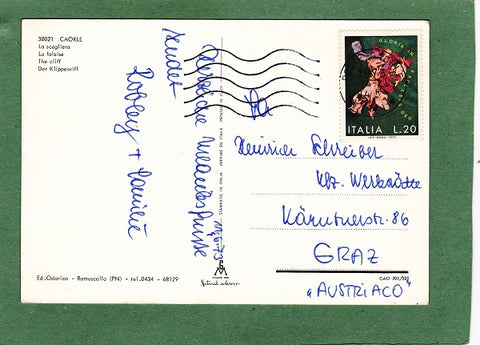 30021 CAORLE
La scogliera
La falaise
The cliff
Der Klippenriff
14.6.73
Herzliche Urlaubsgrüsse
sendet
Familie
GLORIA IN EXCELSIS DEO
ITALIA L.20
Fa
Heinrich Schreiber
Kfz. Werkstätte
Kärntnerstr. 86
GRAZ
"AUSTRIACO"
Ed. Odorico - Ramuscello (PN) - tel. 0434 - 68129
CAO 201/321